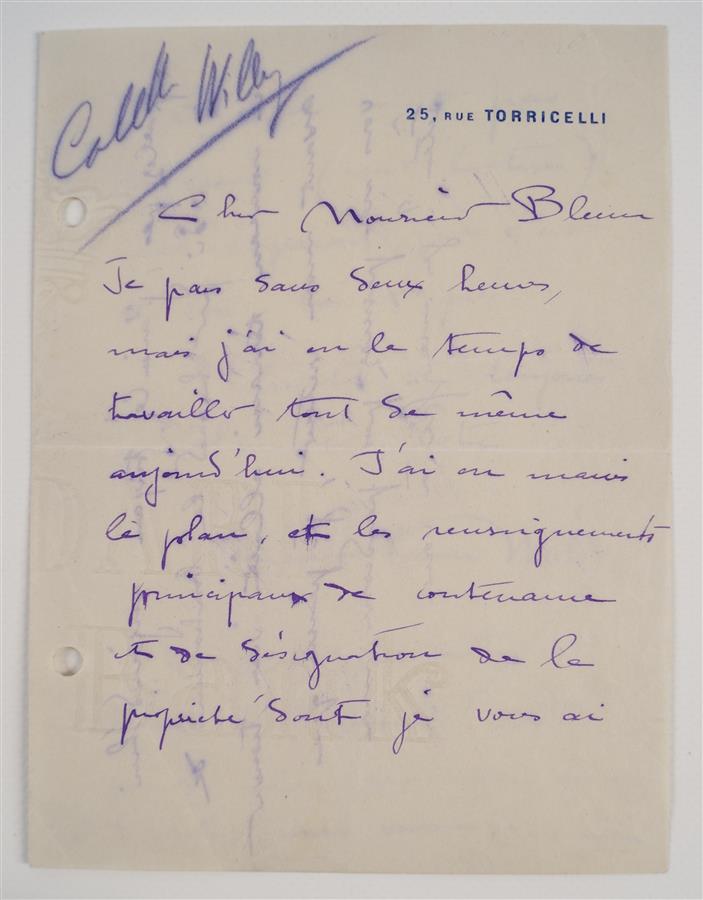 Colette Willy
25, RUE TORRICELLI
Cher Monsieur Blum
Je pars dans deux heures,
mais j'ai eu le temps de
travailler tout de même
aujourd'hui. J'ai en mains
le plan, et les renseignements
principaux de contenance
et de désignation de la
propriété dont je vous ai